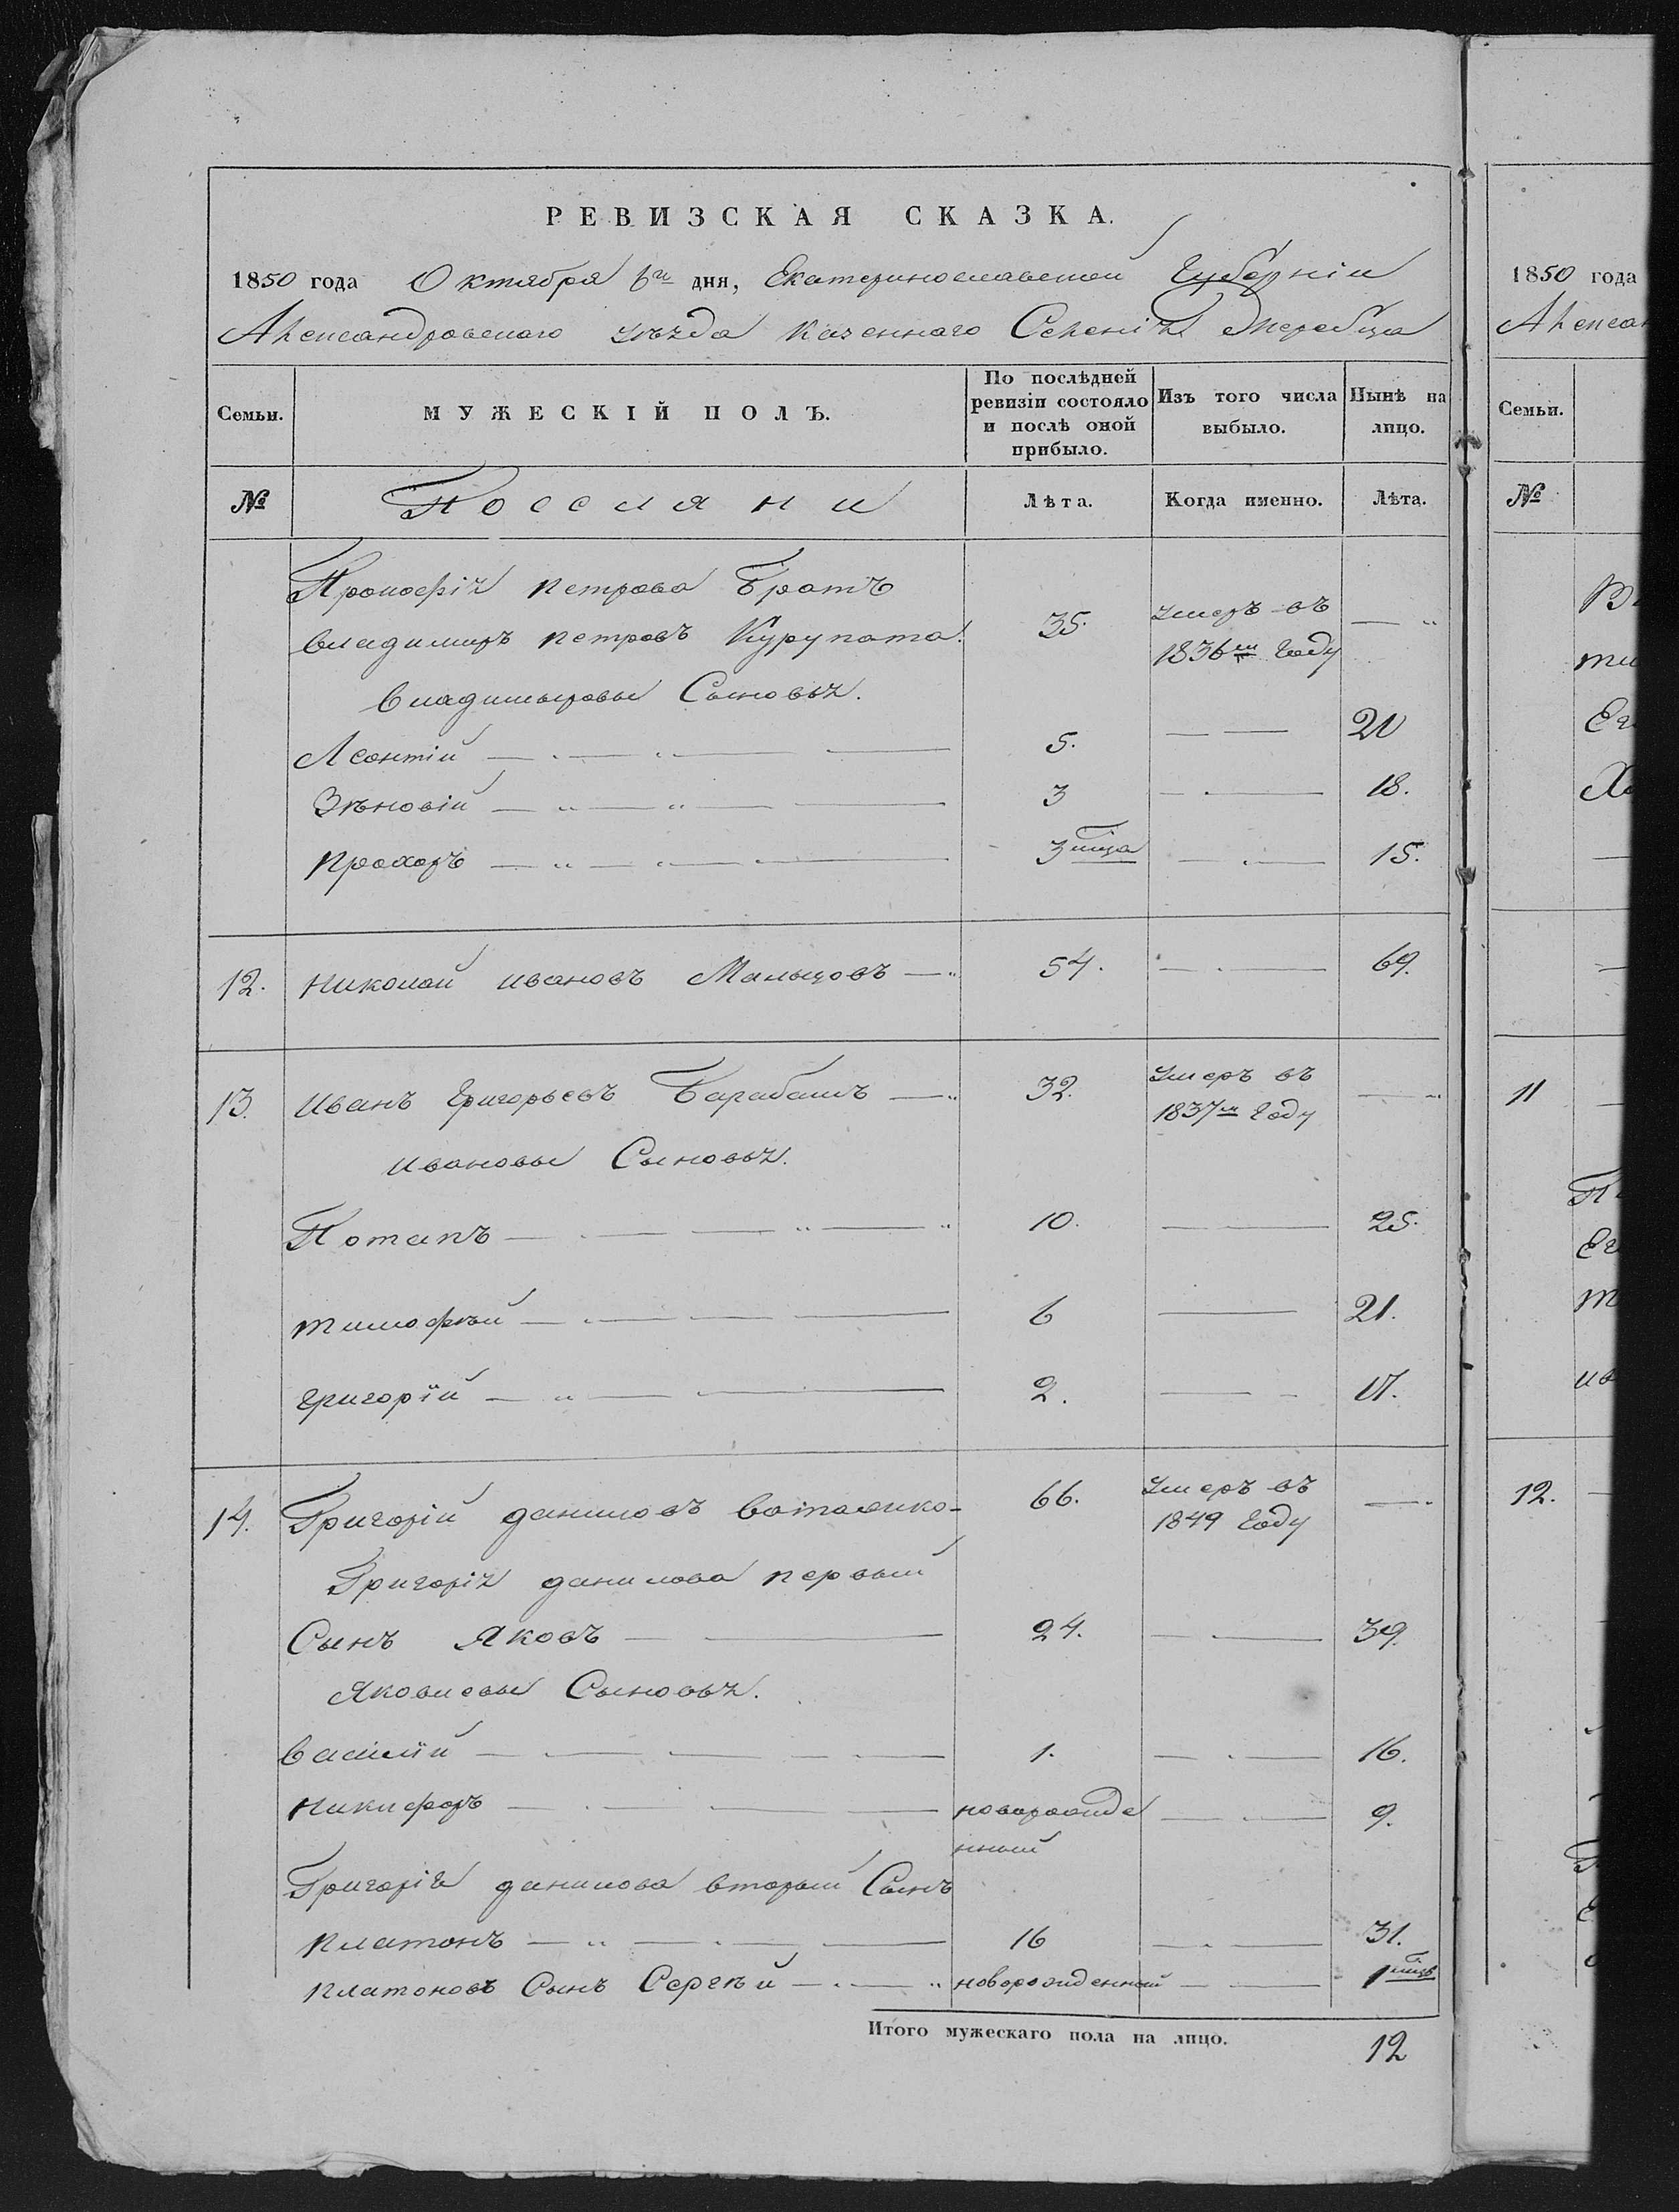 РЕВИЗСКАЯ СКАЗКА.
1850 года Октября 6го дня, Екатеринославской Губерніи
Александровского уѣзда казенного Селенія Жеребца
Семьи. МУЖЕСКІЙ ПОЛЪ. По послѣдней ревизіи состояло и послѣ оной прибыло. Изъ того числа выбыло. Нынѣ на лицо.
№ Поселяни Лѣта. Когда именно. Лѣта.
Прокофія петрова Братъ
владимиръ петровъ Курупата. 35. умеръ въ 1836м Году
владимыровы Сыновья.
Леонтій 5. 20
Зѣновій 3 18.
прохоръ 3 мца 15.
12. николай ивановъ Мальцовъ 54. 69.
13. иванъ григорьевъ Барабашъ 32. Умеръ въ 1837м Году
ивановы Сыновья.
Потапъ 10. 25.
тимофѣй 6 21.
григорій 2. 17.
14. Григорій даниловъ 66. Умеръ въ 1849 Году
Григорія данилова первый
Сынъ Яковъ 24. 39.
Яковлевы Сыновья.
василій 1. 16.
никифоръ новорожде 9.
нный
Григорія данилова вторый Сынъ
платонъ 16 31.
платоновъ Сынъ Сергѣй новорожденный 1 мцъ
Итого мужескаго пола на лицо. 12
1850 года
Семьи.
№
11
12.